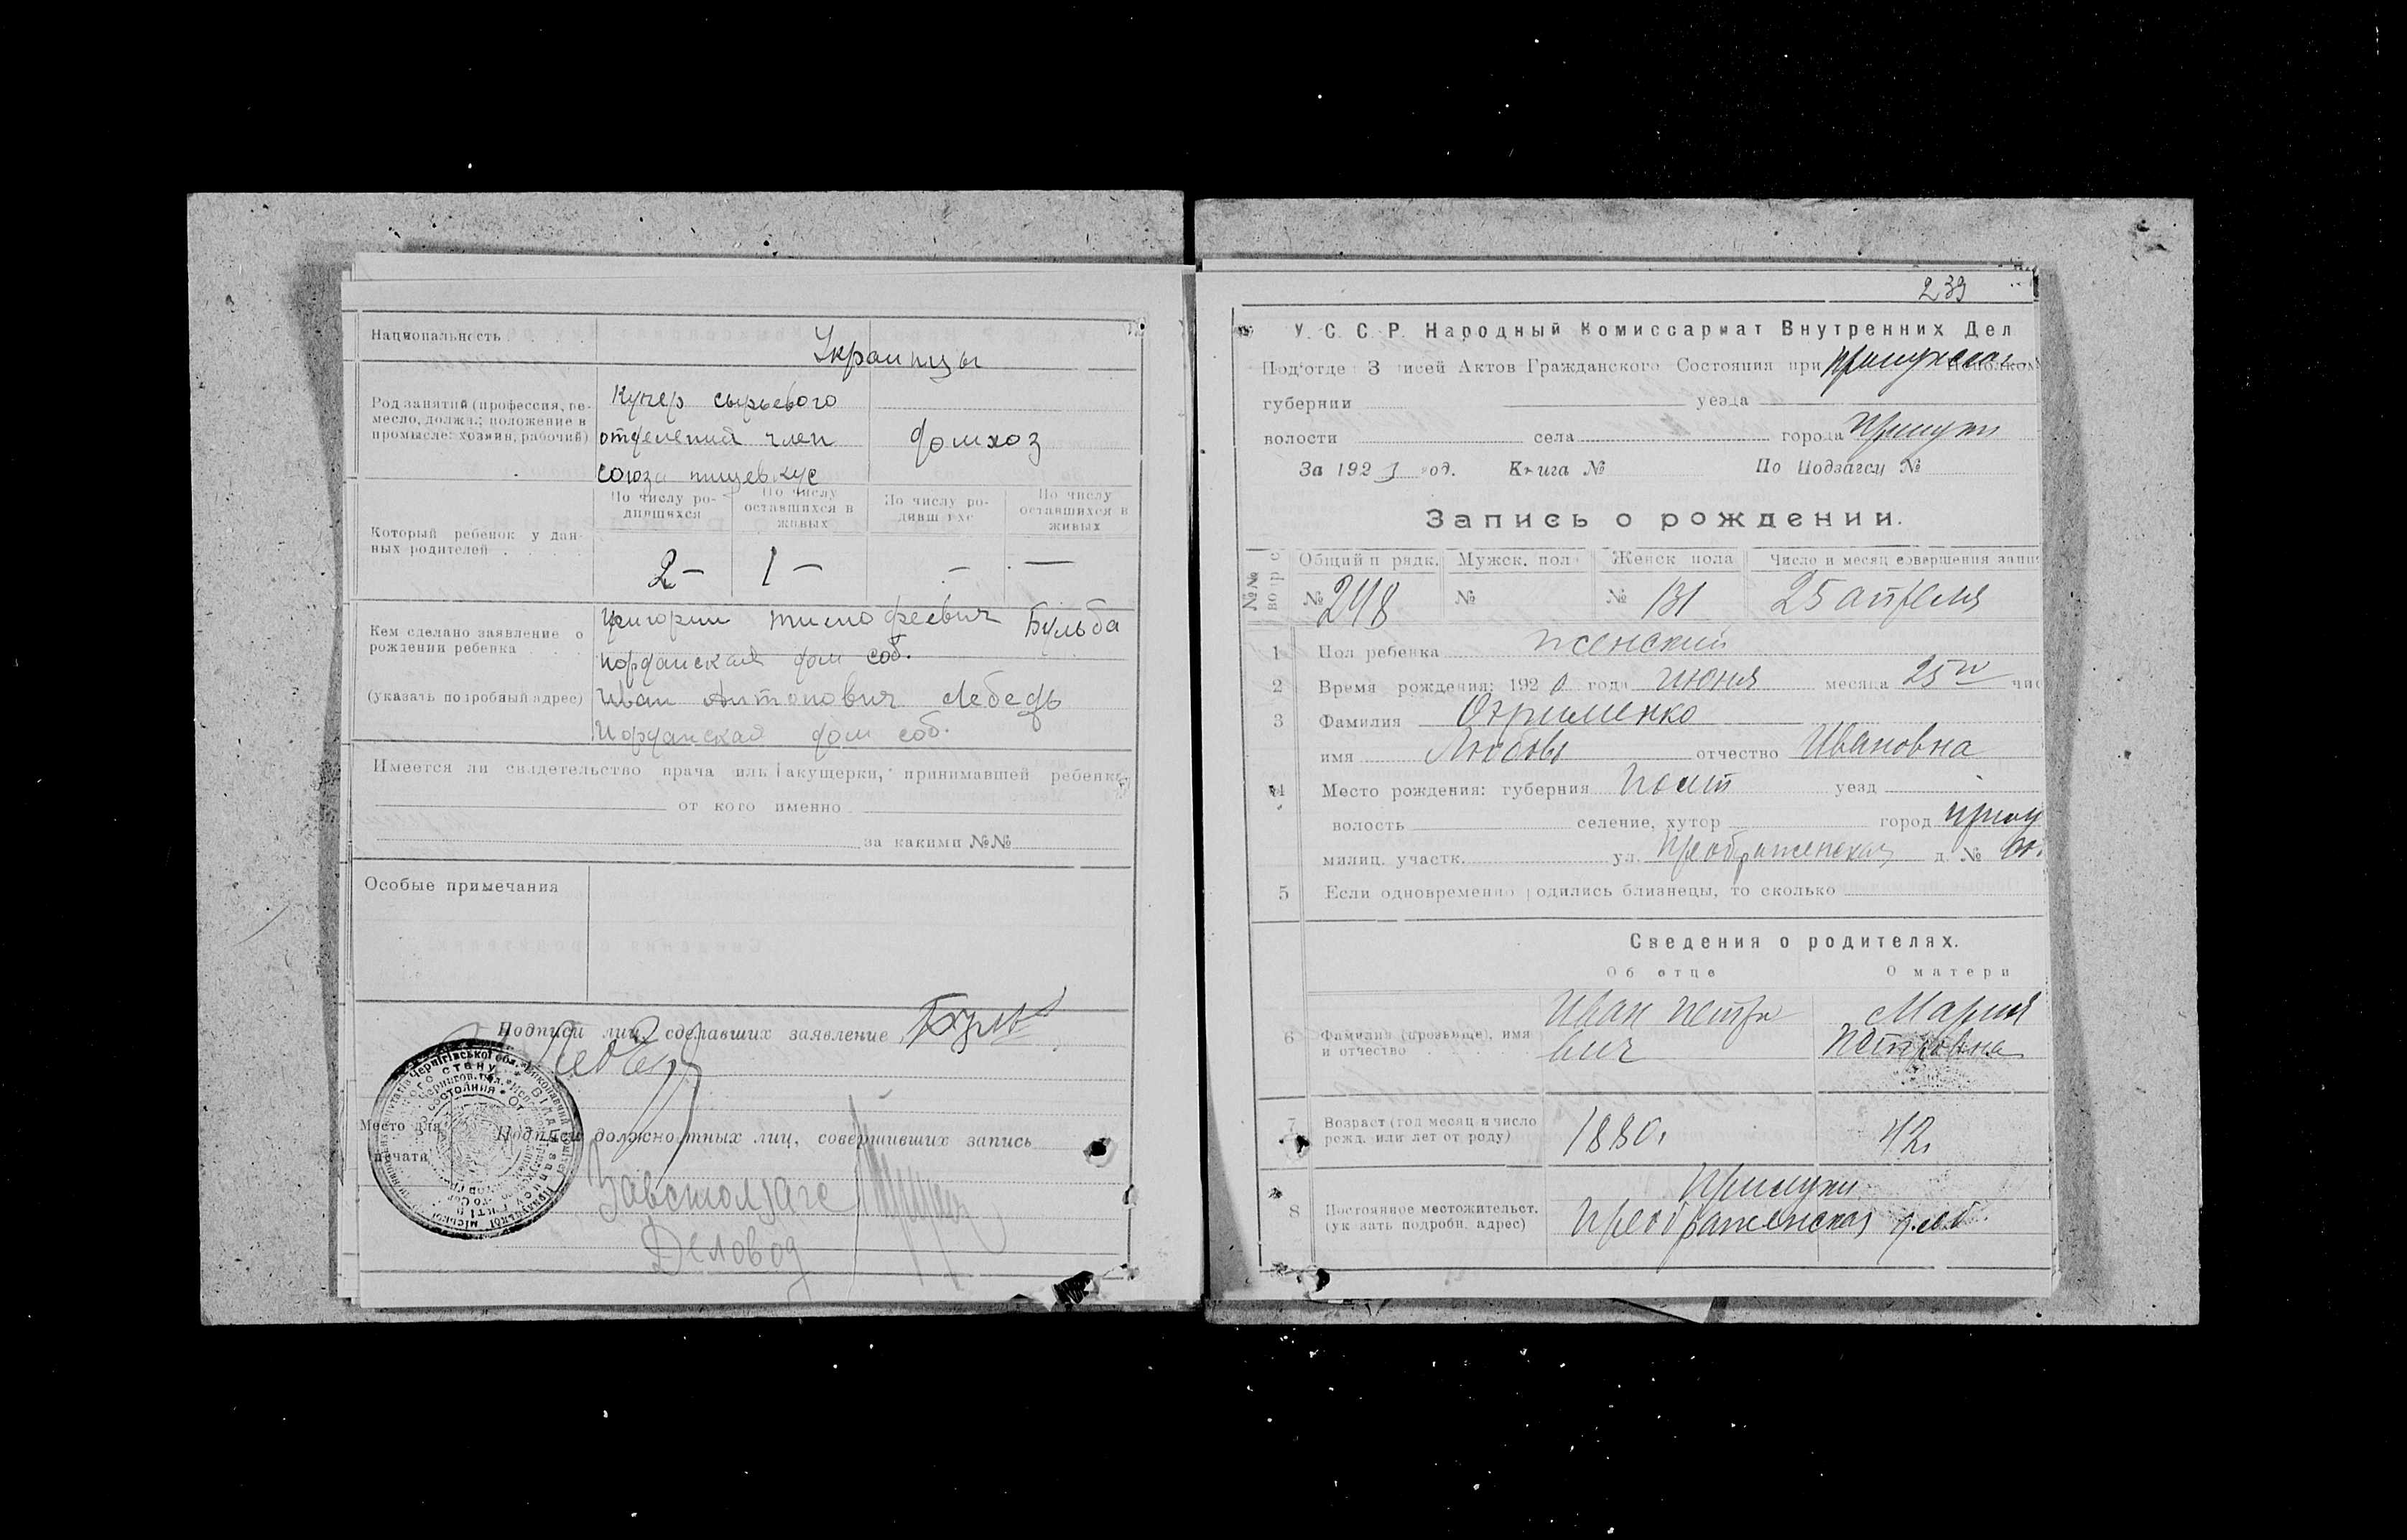 Национальность
Украинцы
Род занятий (профессия, ре-
месло, должн.; положение в
промысле: хозяин, рабочий)
Кучер сырьевого
отделения член
союза пищевкус
домхоз
Который ребенок у дан-
ных родителей
По числу ро-
дившихся
По числу
оставшихся в
живых
По числу ро-
дивш ихс
По числу
оставшихся в
живых
2 —
1 —
—
—
Кем сделано заявление о
рождении ребенка
(указать подробный адрес)
Григорий Тимофеевич Бульба
Иорданская дом соб.
Иван Антонович Лебедь
Иорданская дом соб.
Имеется ли свидетельство врача или акушерки, принимавшей ребенка
от кого именно
за какими №№
Особые примечания
Подписи лиц, сделавших заявление
Лебедь
Место для
печати
Подписи должностных лиц, совершивших запись
Завстолзагс
Деловод
239
У. С. С. Р. Народный Комиссариат Внутренних Дел
Под'отде Записей Актов Гражданского Состояния при Прилукском Исполком
губернии уезда
волости села города Прилуки
За 1921 год. Книга № По Подзагсу №
Запись о рождении.
№№
Общий п рядк. Мужск. пол Женск пола Число и месяц совершения запи
№ 248 № № 131 25 апреля
1 Пол ребенка женский
2 Время рождения: 1920 года июня месяца 25го чис
3 Фамилия Охрименко
имя Любовь отчество Ивановна
4 Место рождения: губерния Полт уезд
волость селение, хутор город Прилу
милиц. участк. ул. Преображенская д. №
5 Если одновременно родились близнецы, то сколько
Сведения о родителях.
Об отце О матери
6 Фамилия (прозвище), имя
и отчество
Иван Петро
вич
Мария
Петровна
7 Возраст (год месяц и число
рожд. или лет от роду)
1880. 42.
8 Постоянное местожительст.
(указать подробн. адрес)
Прилуки
Преображенская